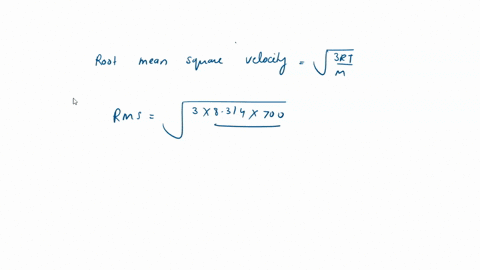 Root mean square velocity = √3RT/M
RMS = √3 × 8.314 × 700